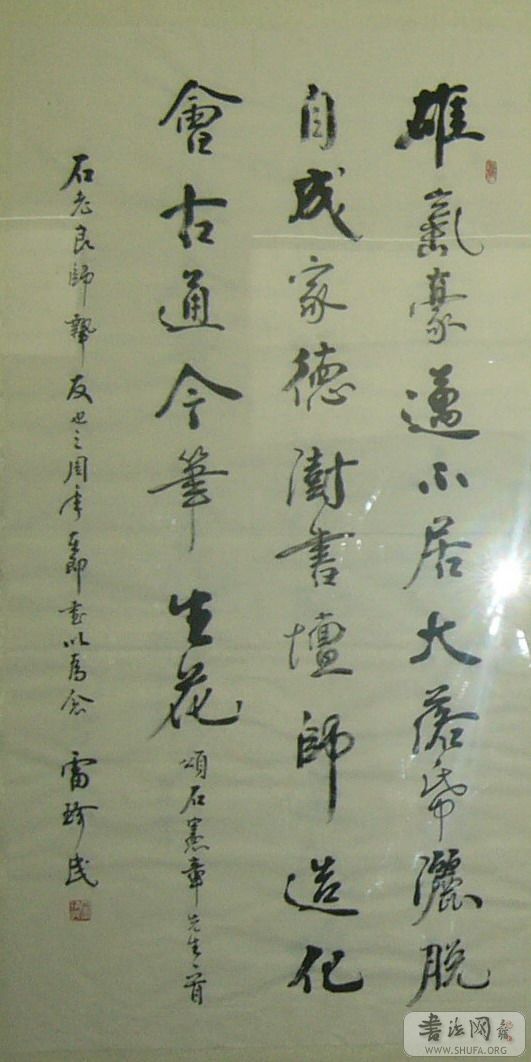 雄氣豪邁不居大落帋灑脫
自成家德澍書壇師造化
會古通今筆生花
頌石憲章先生一首
石老良師摯友也三周年即書以為念
雷珍民
書法网
WWW.SHUFA.ORG